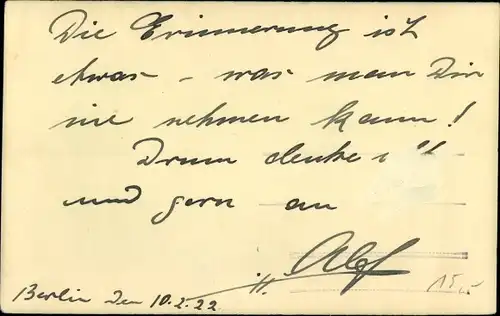 Die Erinnerung ist
etwas - was man Dir
nie nehmen kann!
Drum denke
und gern an
Berlin den 10.2.22